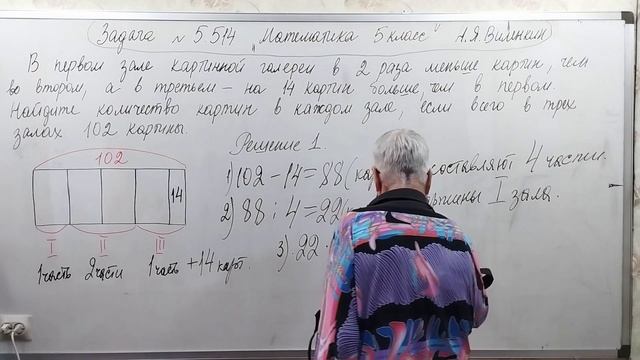 Задача № 5 514 „Математика 5 класс" А.Я. Виленкин
В первом зале картинной галереи в 2 раза меньше картин, чем
во втором, а в третьем – на 14 картин больше, чем в первом.
Найдите количество картин в каждом зале, если всего в трёх
залах 102 картины.
Решение 1.
102
14
I II III
1 часть 2 части 1 часть + 14 карт.
1) 102 - 14 = 88 ( составляют 4 части.
2) 88 : 4 = 22 I зала.
3) 22